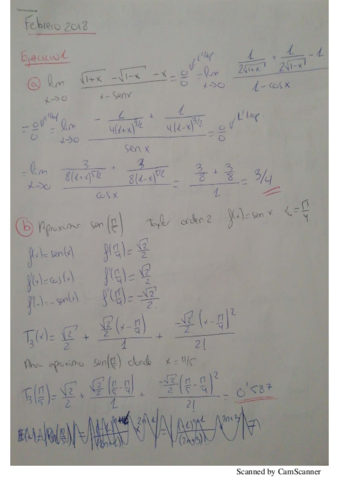 Febrero 2018
Ejercicio 1
a) lim x→0 (√(1+x) - √(1-x) - x)/(x - senx) = 0/0 L'Hop = lim x→0 (1/(2√(1+x)) + 1/(2√(1-x)) - 1)/(1 - cosx)
= 0/0 L'Hop = lim x→0 (-1/(4(1+x)^3/2) + 1/(4(1-x)^3/2))/(senx) = 0/0 L'Hop
= lim x→0 (3/(8(1+x)^5/2) + 3/(8(1-x)^5/2))/(cosx) = (3/8 + 3/8)/1 = 3/4
b) Aproximo sen(π/5) Taylor orden 2 f(x)=senx π/4
f(x)=sen(x) f(π/4)=√2/2
f'(x)=cos(x) f'(π/4)=√2/2
f''(x)=-sen(x) f''(π/4)=-√2/2
(x) = √2/2 + √2/2(x-π/4)/1 + -√2/2(x-π/4)²/2!
Ahora aproximo sen(π/5) donde x=π/5
(π/5) = √2/2 + √2/2(π/5-π/4)/1 + -√2/2(π/5-π/4)²/2! = 0'587
Scanned by CamScanner